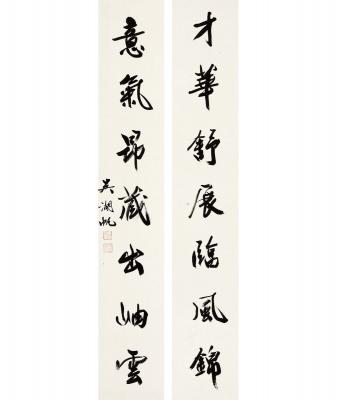 才華舒展臨風錦
意氣昂藏出岫雲
吳湖帆